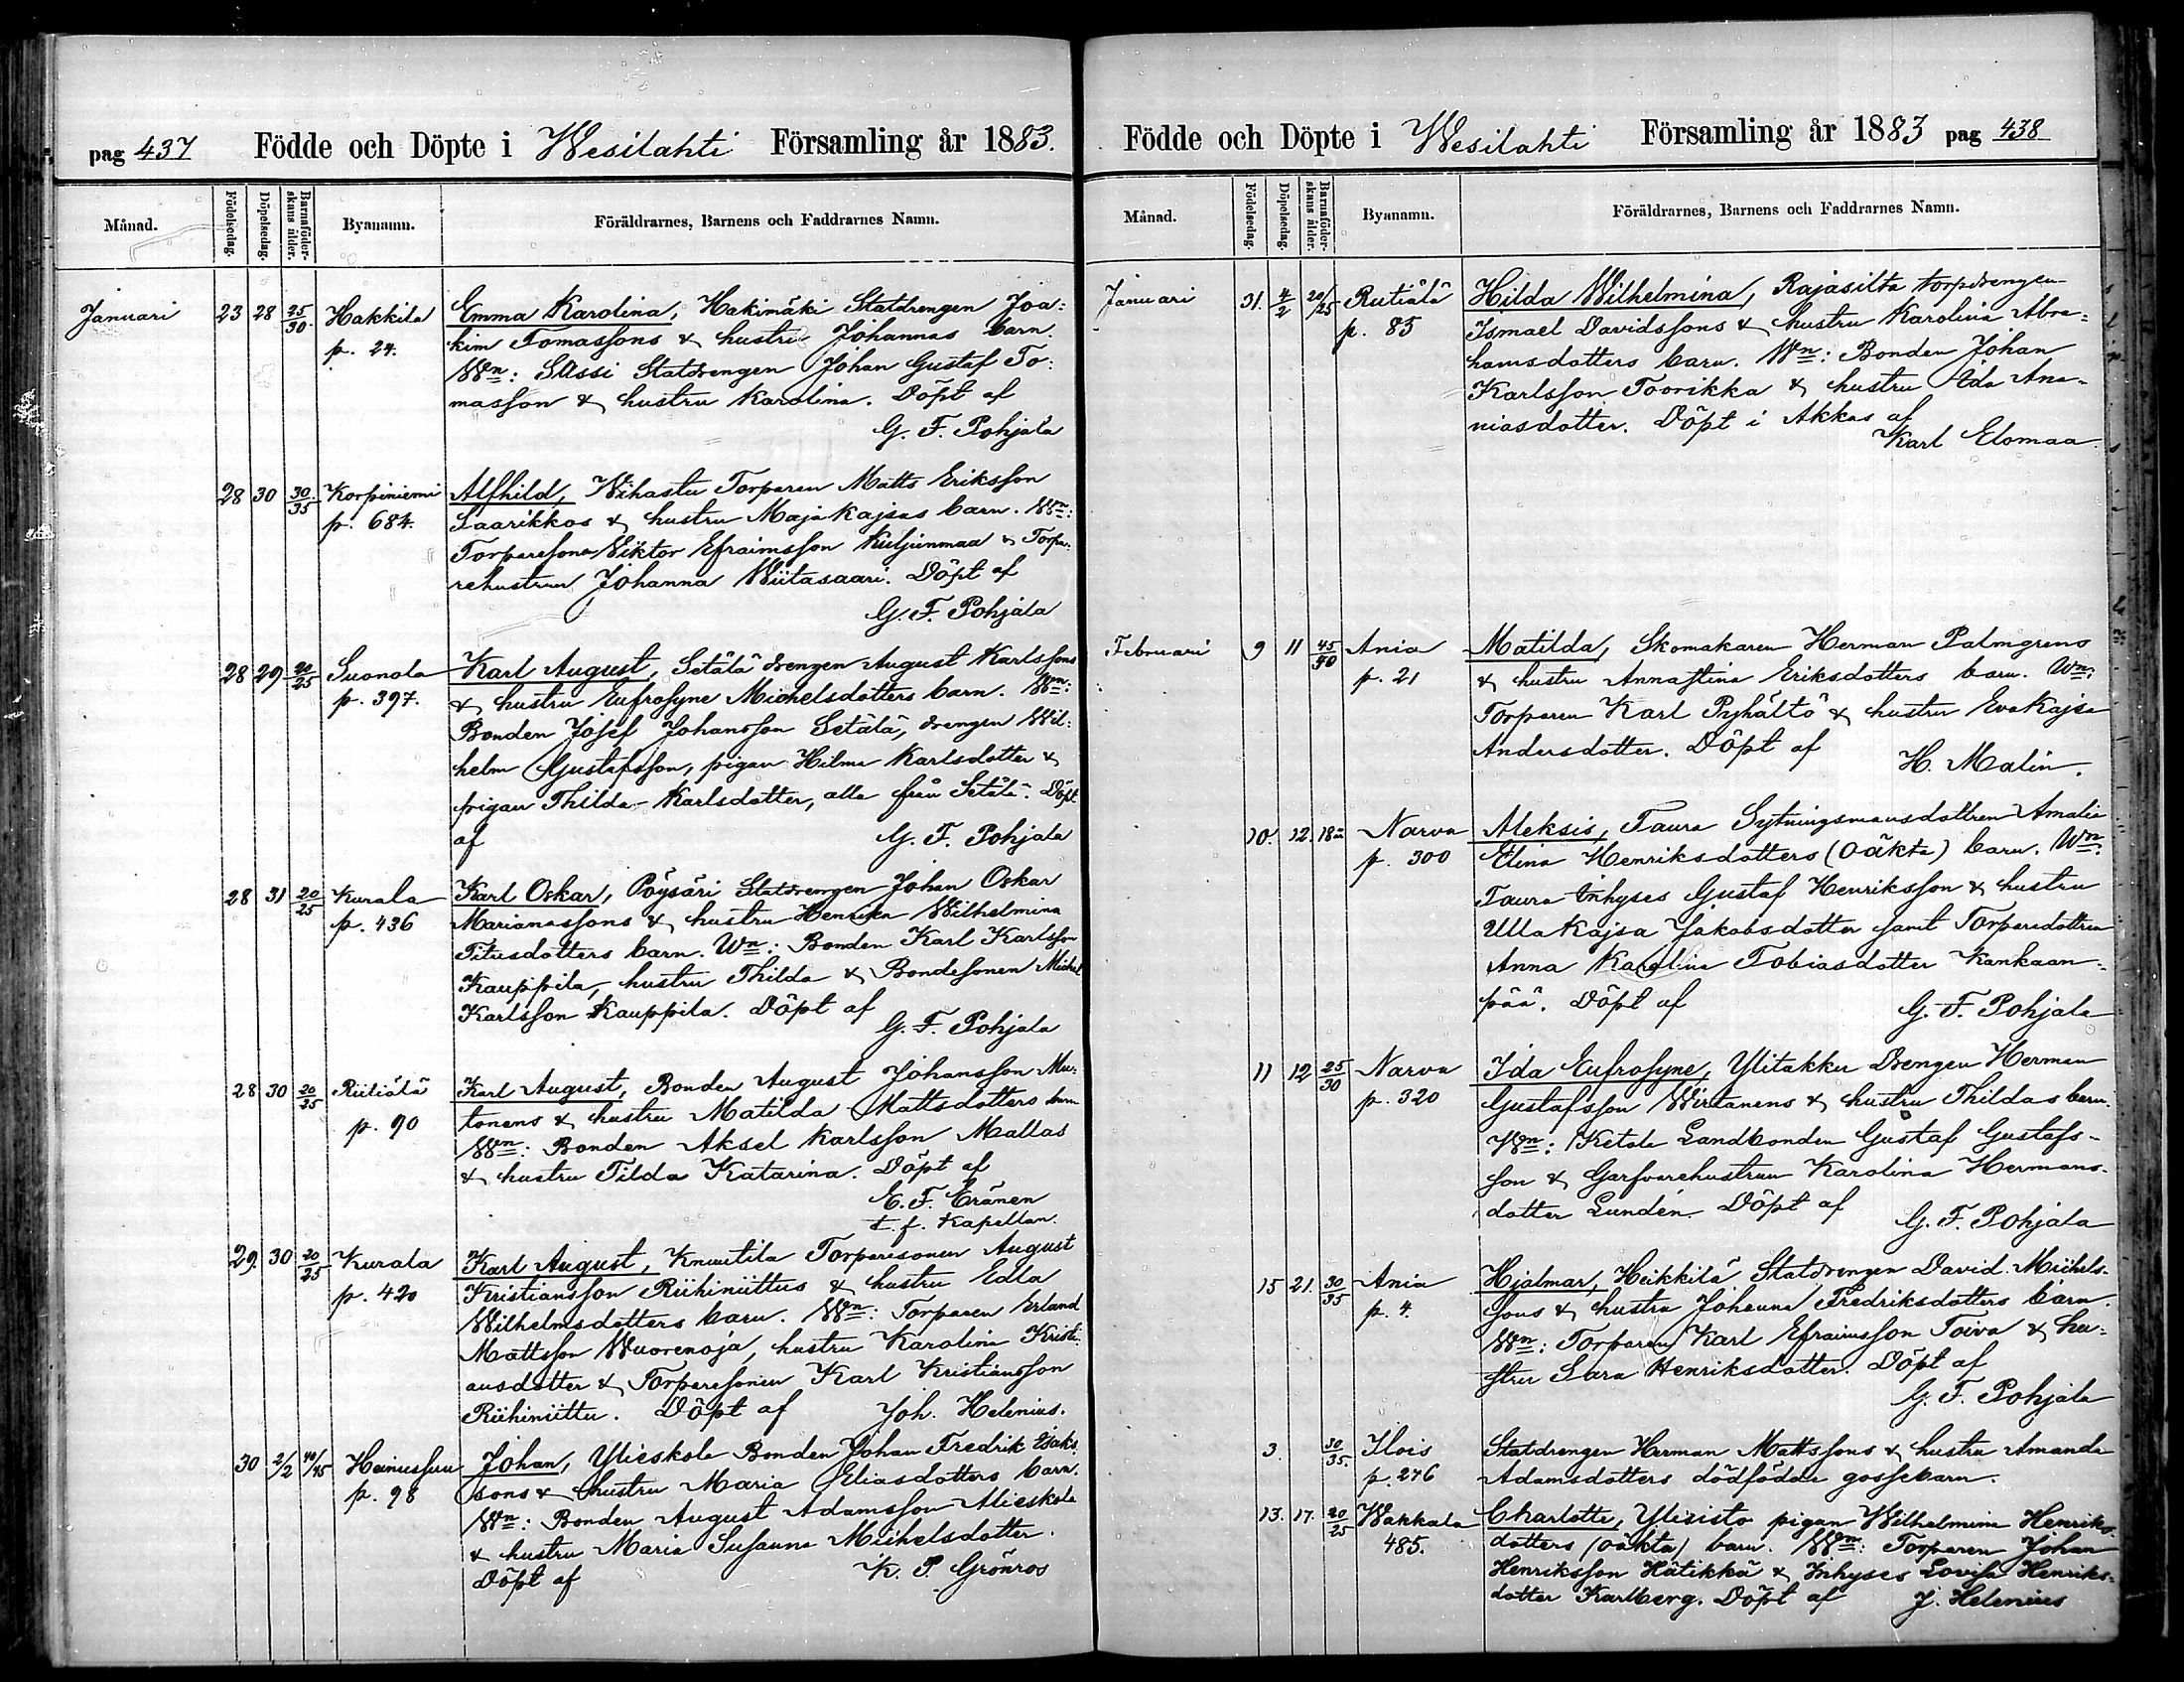 pag 437 Födde och Döpte i Wesilahti Församling år 1883.
Månad. Födelsedag. Döpelsedag. Barnaföderskans ålder. Byanamn. Föräldrarnes, Barnens och Faddrarnes Namn.
Januari 23 28 25/30. Hakkila Emma Karolina, Hakimäki Statdrengen Joa:
p. 24. kim Tomassons & hustru Johannas barn.
Wn: Sassi Statdrengen Johan Gustaf To:
masson & hustru Karolina. Döpt af
G. F. Pohjala
28 30 30/35 Korpiniemi Alfhild, Wihastu Torparen Matts Eriksson
p. 684. Saarikkos & hustru Maja Kajsas barn. Wn:
Torparesonen Viktor Efraimsson Kuljunmaa & Torpa:
rehustrun Johanna Wiitasaari. Döpt af
G. F. Pohjala
28 29 20/25 Suonola Karl August, Setälä drengen August Karlssons
p. 397. & hustru Eufrosyne Michelsdotters barn. Wn:
Bonden Josef Johansson Setälä, drengen Wil:
helm Gustafsson, pigan Hilma Karlsdotter &
pigan Thilda Karlsdotter, alla från Setälä. Döpt
af G. F. Pohjala
28 31 20/25 Kurala Karl Oskar, Pöysäri Statdrengen Johan Oskar
p. 436 Marianassons & hustru Henrika Wilhelmina
Titusdotters barn. Wn: Bonden Karl Karlsson
Kauppila, hustru Thilda & Bondesonen Michel
Karlsson Kauppila. Döpt af
G. F. Pohjala
28 30 20/25 Rutiälä Karl August, Bonden August Johansson Mu:
p. 90 tonens & hustru Matilda Mattsdotters barn
Wn: Bonden Aksel Karlsson Mallas
& hustru Tilda Katarina. Döpt af
E. F. Eränen
t. f. Kapellan.
29. 30 20/25 Kurala Karl August, Knuutila Torparesonen August
p. 420 Kristiansson Riihiniittus & hustru Edla
Wilhelmsdotters barn. Wn: Torparen Erland
Mattsson Wuorenoja, hustru Karolina Kristi:
ansdotter & Torparesonen Karl Kristiansson
Riihiniittu. Döpt af Joh. Helenius.
30 2/2 40/45 Heinusuu Johan, Ylieskola Bonden Johan Fredrik Isaks
p. 98 sons & hustru Maria Eliasdotters barn.
Wn: Bonden August Adamsson Alieskola
& hustru Maria Susanna Michelsdotter.
Döpt af K. P. Grönros
Födde och Döpte i Wesilahti Församling år 1883 pag 438
Månad. Födelsedag. Döpelsedag. Barnaföderskans ålder. Byanamn. Föräldrarnes, Barnens och Faddrarnes Namn.
Januari 31. 4/2 20/25 Rutiälä Hilda Wilhelmina, Rajasilta torpdrengen
p. 85 Ismael Davidssons & hustru Karolina Abra:
hamsdotters barn. Wn: Bonden Johan
Karlsson Toorikka & hustru Ida Ana:
niasdotter. Döpt i Akkas af
Karl Elomaa.
Februari 9 11 45/50 Ania Matilda, Skomakaren Herman Palmgrens
p. 21 & hustru Annastina Eriksdotters barn. Wn:
Torparen Karl Pyhältö & hustru Eva Kajsa
Andersdotter. Döpt af
H. Malin.
10. 12. 18 år Narva Aleksis, Taura Sytningsmansdottren Amalia
p. 300 Elina Henriksdotters (oäkta) barn. Wn:
Taura Inhyses Gustaf Henriksson & hustru
Ulla Kajsa Jakobsdotter samt Torparedottren
Anna Karolina Tobiasdotter Kankaan:
pää. Döpt af
G. F. Pohjala
11 12 25/30 Narva Ida Eufrosyne, Ylitakku Drengen Herman
p. 320 Gustafsson Wirtanens & hustru Thildas barn.
Wn: Ketola Landbonden Gustaf Gustafs-
son & Garfvarehustrun Karolina Hermans-
dotter Lundén. Döpt af
G. F. Pohjala
15 21. 30/35 Ania Hjalmar, Heikkilä Statdrengen David Michels-
p. 4. sons & hustru Johanna Fredriksdotters barn.
Wn: Torparen Karl Efraimsson Toiva & hu:
stru Sara Henriksdotter. Döpt af
G. F. Pohjala
3. 30/35. Ilois Statdrengen Herman Mattssons & hustru Amanda
p. 276 Adamsdotters dödfödda gossebarn.
13. 17. 20/25 Wakkala Charlotta, Ylisisto pigan Wilhelmina Henriks
485. dotters (oäkta) barn. Wn: Torparen Johan
Henriksson Hätikkä & Inhyses Lovisa Henriks-
dotter Karlberg. Döpt af J. Helenius